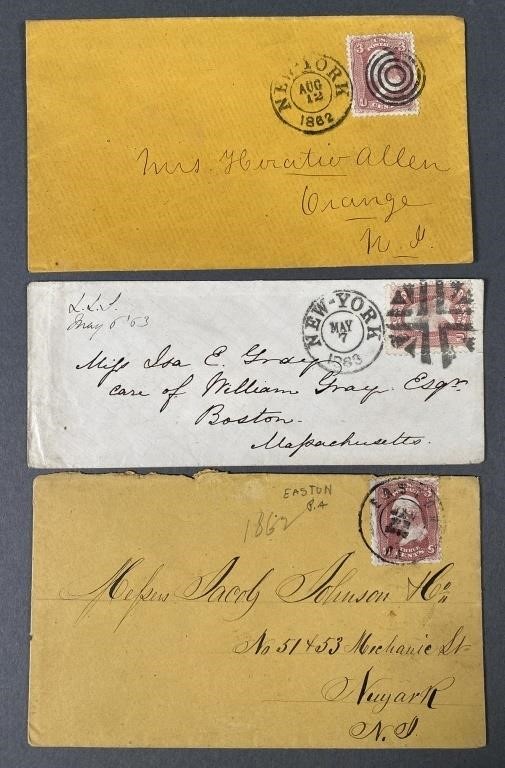 NEW-YORK
AUG
12
1862
3 U.S. 3
Mrs. Horatio Allen
Orange
N.J.
L.L.S.
May 6 '63
NEW-YORK
MAY
7
1863
Miss Isa E. Gray
care of William Gray Esqr.
Boston.
Massachusetts.
EASTON
P.A
1862
THREE
CENTS
Messrs Jacob Johnson & Co
No 51 & 53 Mechanic St
Newark
N.J.